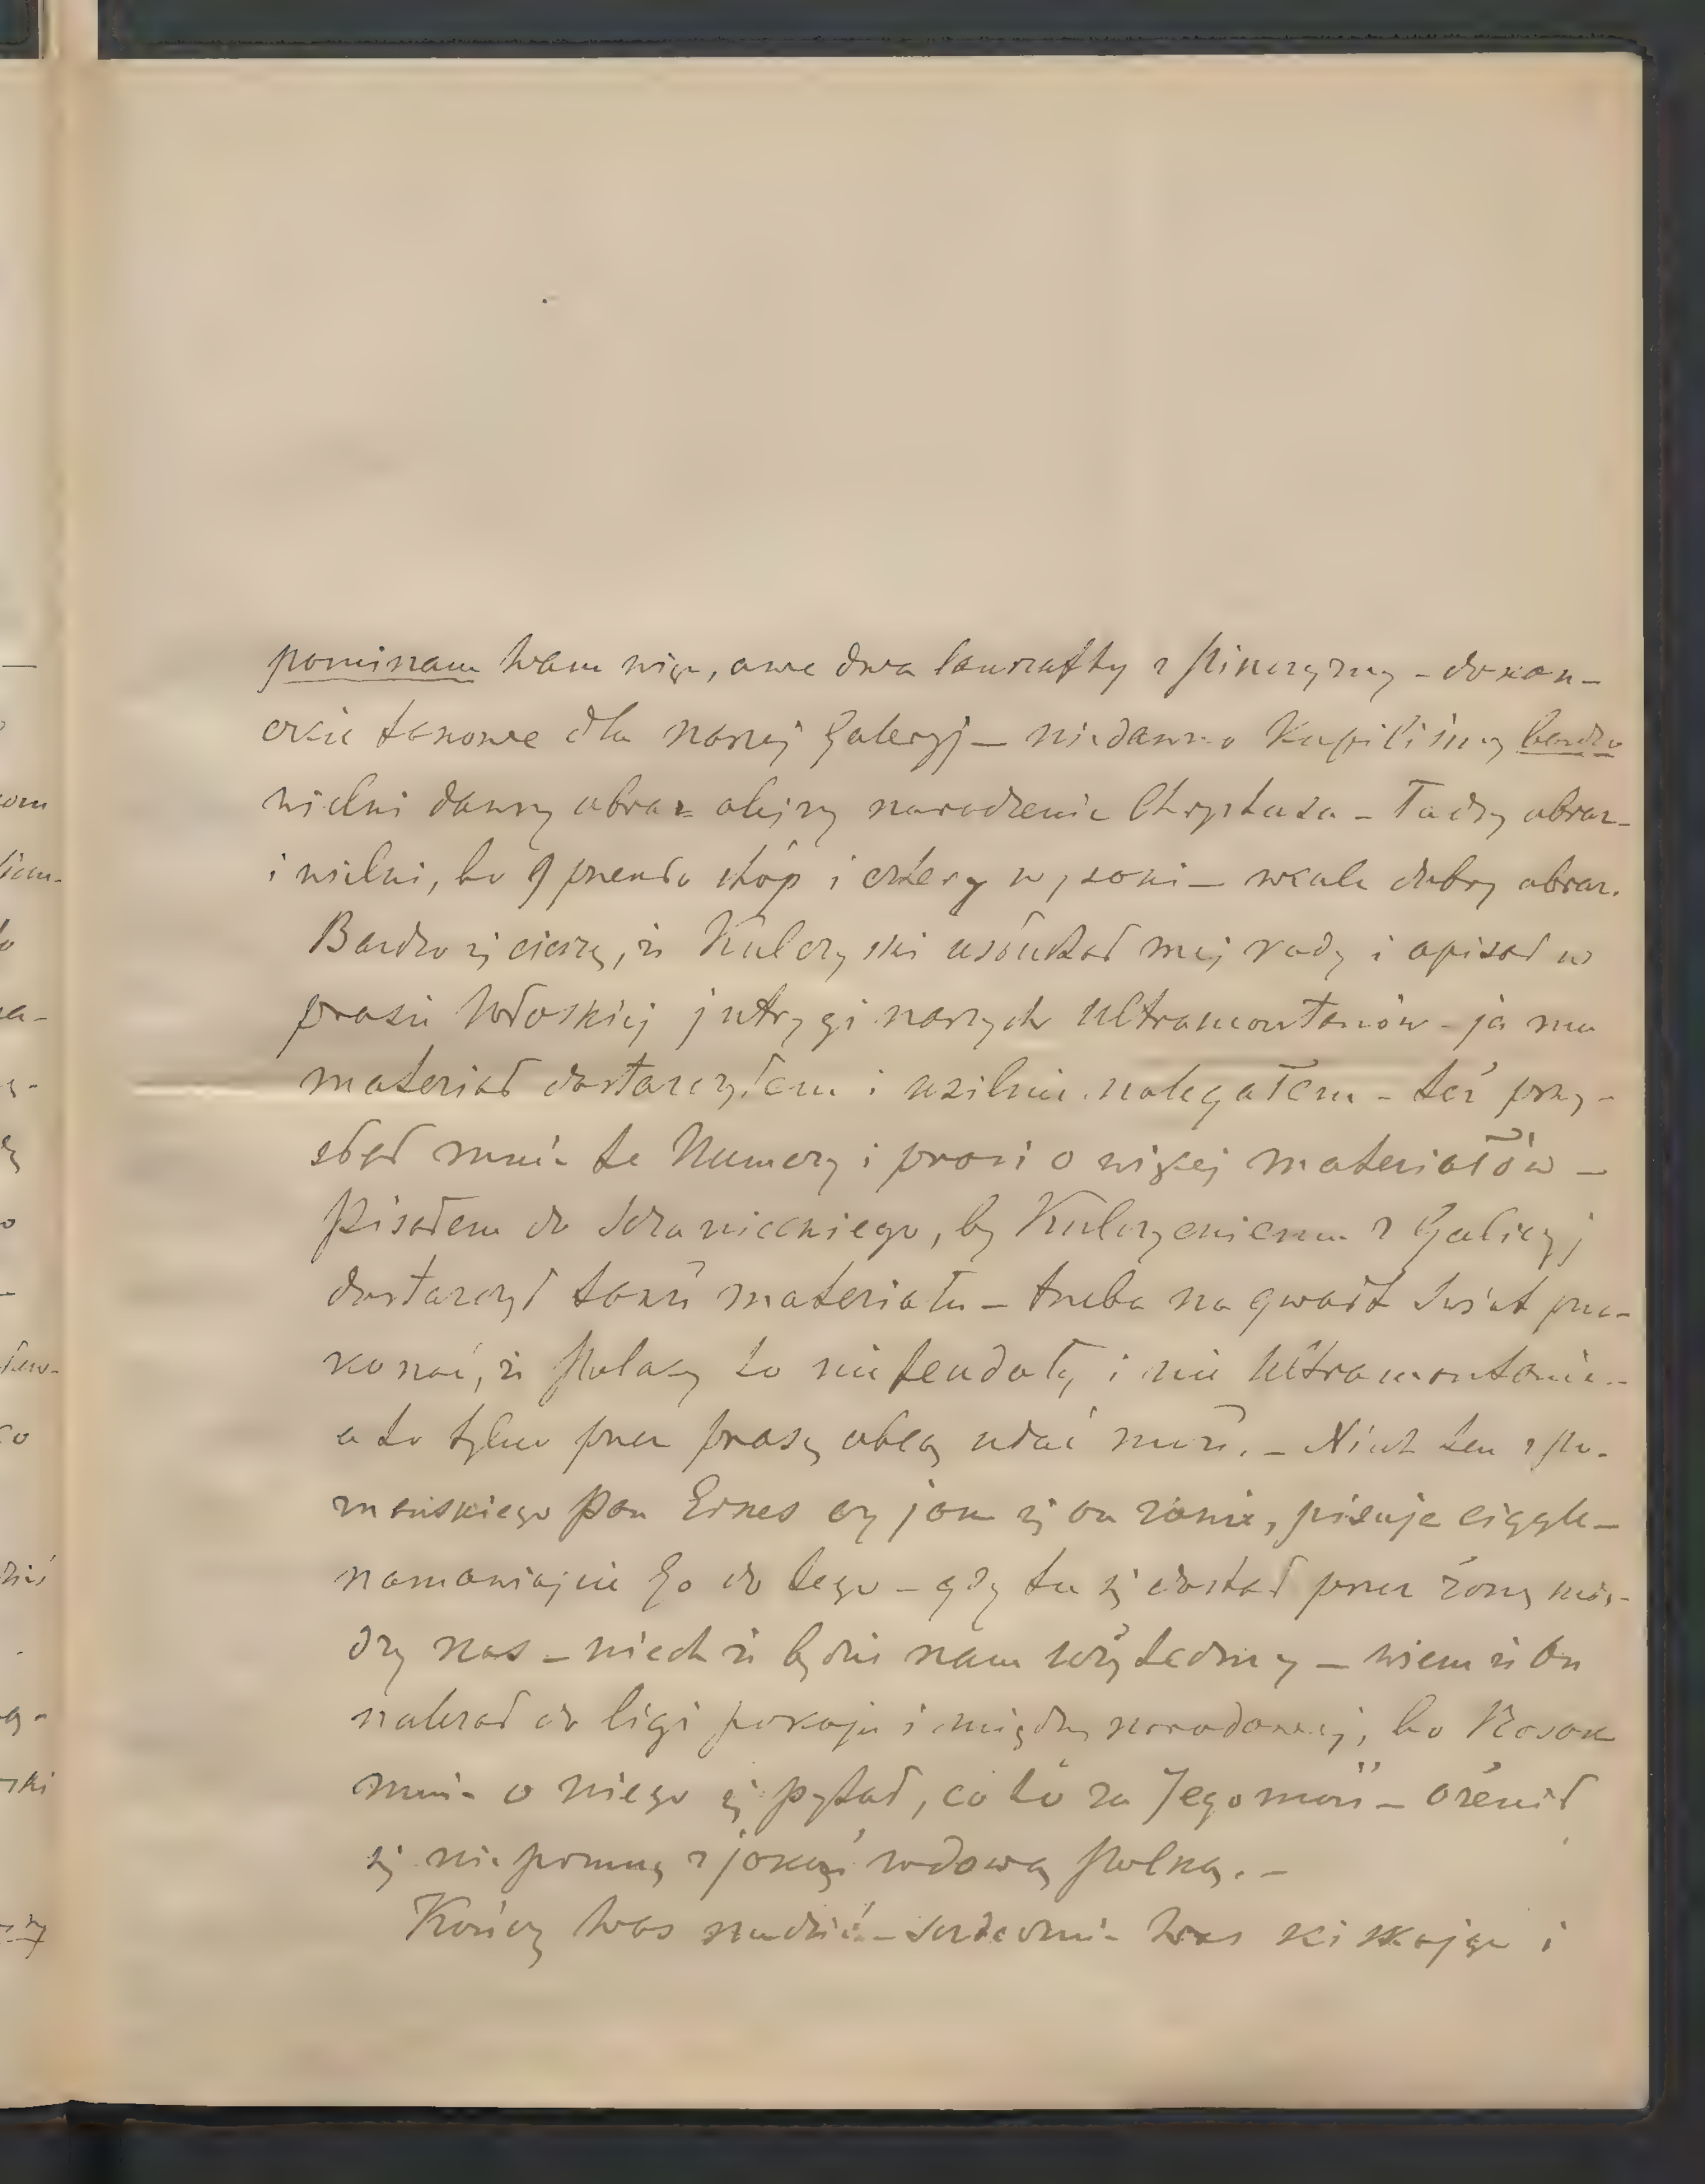 pominam Wam więc, owe dwa landszafty z Pińczyzny – dokań-
czcie takowe dla naszej Galeryj – niedawno kupiliśmy bardzo
wielki dawny obraz olejny narodzenie Chrystusa – Ładny obraz –
i wielki, bo 9 przeszło stóp i cztery wysoki – wcale dobry obraz.
Bardzo się cieszę, że Kulczyski usłuchał mej rady i opisał w
prasie Włoskiej jntrygi naszych Ultramontanów – ja mu
materiał dostarczyłem i usilnie nalegałem – też przy-
słał mnie te Numery i prosi o więcej materiałów –
Pisałem do    , by Kulczyckiemu z Galicyj
dostarczył także materiału – trzeba na gwałt świat prze-
konać, że Polacy to nie feudały i nie Ultramontanie –
a to tylko przez prasę obcą udać może. – Niech ten z Po-
znańskiego Pan    czy jak się on zowie, pisuje ciągle –
namawiajcie Go do tego – gdy tu się dostał przez żonę mię-
dzy nas – niech że będzie nam użyteczny – wiem że On
należał do ligi pokoju i międzynarodowej, bo Kosak
mnie o niego się pytał, co to za Jegomość – ożenił
się nie pomnę z jakąś wdową Polką. –
Kończę Was nudzić – serdecznie Was ściskając i